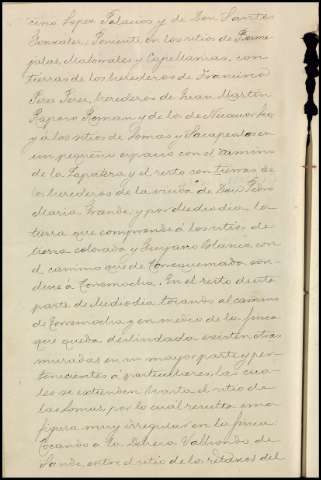 cino Lopez Palacios y de Don Santos
Gonzalez, Poniente en los sitios de
palar, Malonales y Capellanias, con
tierras de los herederos de Francisco
Perez Perez, herederos de Juan Martin
Rapero Roman y de los de
y á los sitios de Lomas y Sacapeatos en
un pequeño espacio con el camino
de la Zapatera y el resto con tierras de
los herederos de la viuda de Don Pedro
Maria Grande, y por mediodia la
tierra que comprende á los sitios de
tierra colorada y Guijarro blanco con
el camino que de Torrequemada con-
duce á Torremocha. En el resto de esta
parte de Mediodia tocando al camino
de Torremocha y en medio de la finca
que queda deslindada existen otras
muradas en su mayor parte y per-
tenecientes á particulares, las cua-
les se extienden hasta el sitio de
las Lomas por lo cual resulta una
figura muy irregular en la finca.
Tocando á la Dehesa Valhondo de
Sande, entre el sitio de los retazos del